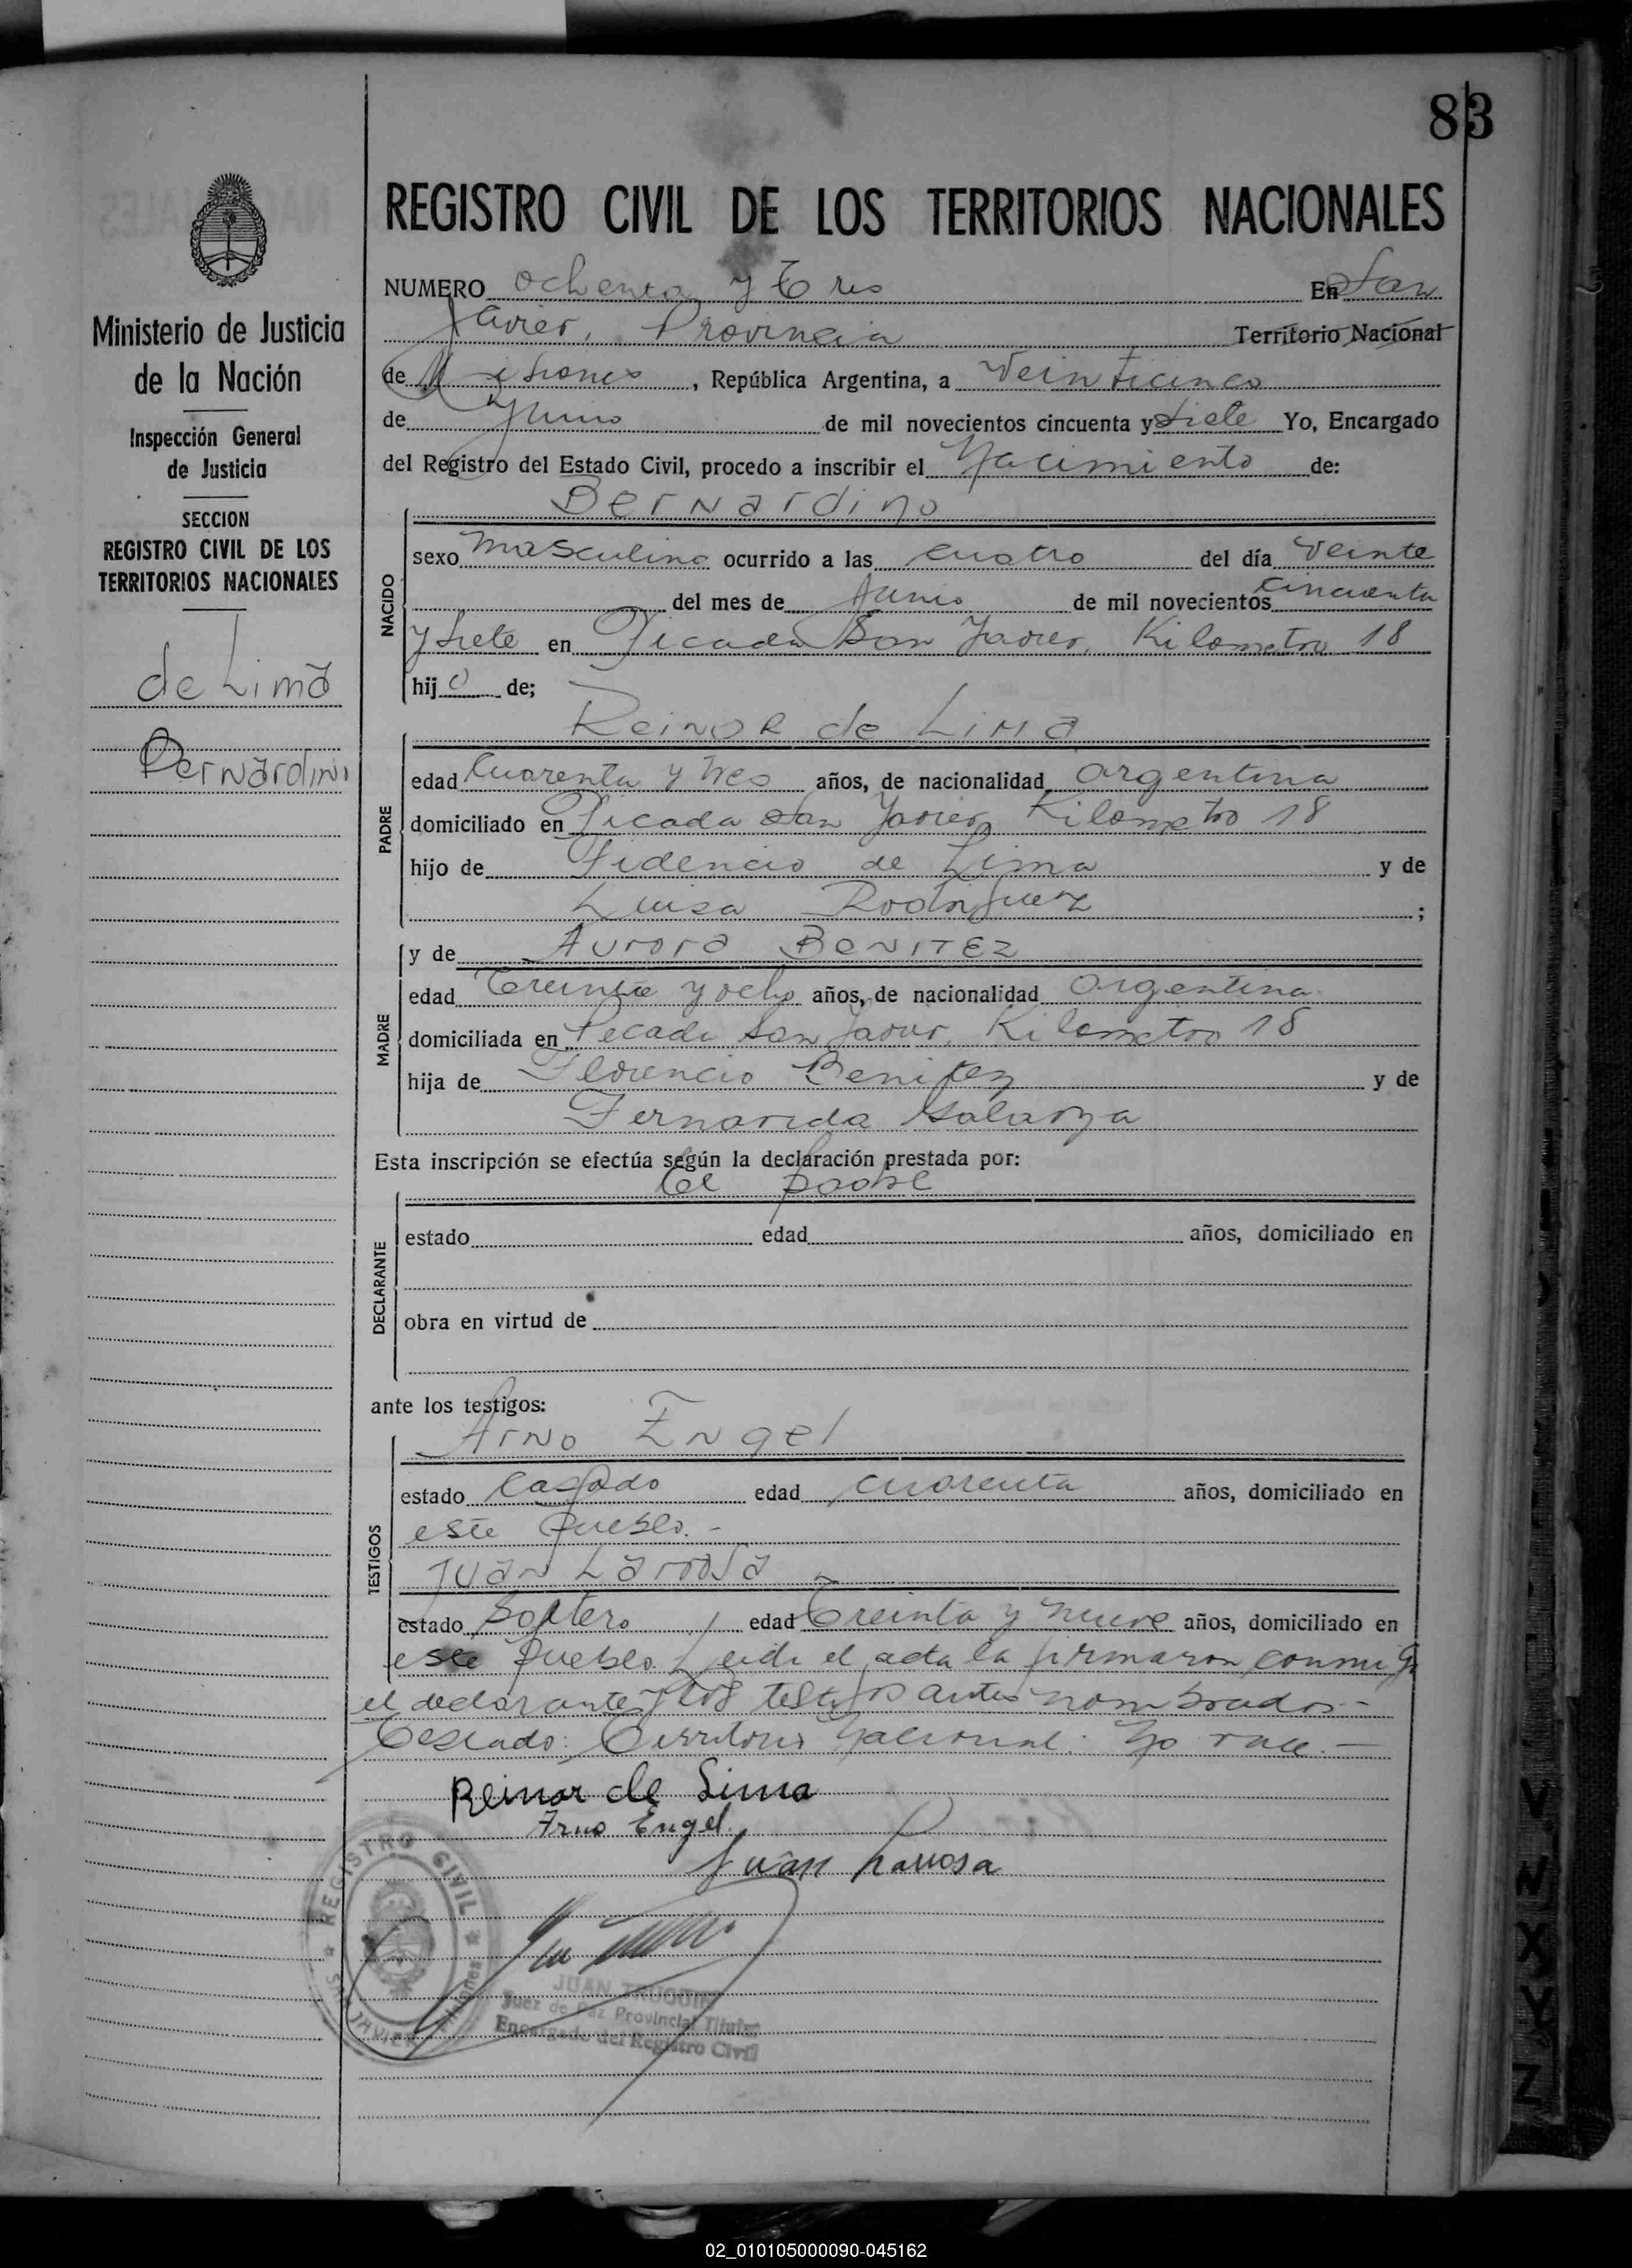 83
REGISTRO CIVIL DE LOS TERRITORIOS NACIONALES
NUMERO ochenta y tres En San
Javier, Provincia Territorio Nacional
de Misiones, República Argentina, a Veinticinco
de Junio de mil novecientos cincuenta y siete Yo, Encargado
del Registro del Estado Civil, procedo a inscribir el Nacimiento de:
Ministerio de Justicia
de la Nación
Inspección General
de Justicia
SECCION
REGISTRO CIVIL DE LOS
TERRITORIOS NACIONALES
de Lima
Bernardino
NACIDO
Bernardino
sexo masculino ocurrido a las cuatro del día veinte
del mes de Junio de mil novecientos cincuenta
y siete en Picada San Javier, Kilometro 18
hijo de;
PADRE
Reinor de Lima
edad Cuarenta y tres años, de nacionalidad argentina
domiciliado en Picada San Javier, Kilometro 18
hijo de Fidencio de Lima y de
Luisa Rodriguez ;
MADRE
y de Aurora BENITEZ
edad Treinta y ocho años, de nacionalidad argentina
domiciliada en Picada San Javier, Kilometro 18
hija de Florencio Benitez y de
Fernanda Galarza
Esta inscripción se efectúa según la declaración prestada por:
DECLARANTE
el padre
estado edad años, domiciliado en
obra en virtud de
ante los testigos:
TESTIGOS
Arno Engel
estado Casado edad cuarenta años, domiciliado en
este Pueblo.-
Juan Larrosa
estado Soltero edad Treinta y nueve años, domiciliado en
este Pueblo. Leida el acta la firmaron conmigo
el declarante y los testigos antes nombrados.-
Testado: Territorio Nacional: No vale.-
Reinor de Lima
Arno Engel.
Juan Larrosa
REGISTRO CIVIL
SAN JAVIER Misiones
JUAN
Juez de Paz Provincial Titular
Encargado del Registro Civil
V
N
X
Y
Z
02_010105000090-045162